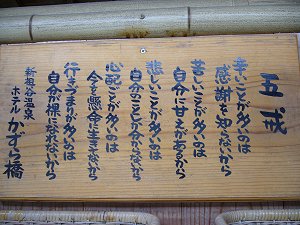 五戒
辛いことが多いのは
感謝を知らないから
苦しいことが多いのは
自分に甘えがあるから
悲しいことが多いのは
自分のことしか分らないから
心配ごとが多いのは
今を懸命に生きてないから
行きづまりが多いのは
自分が裸になれないから
新祖谷温泉
ホテルかずら橋